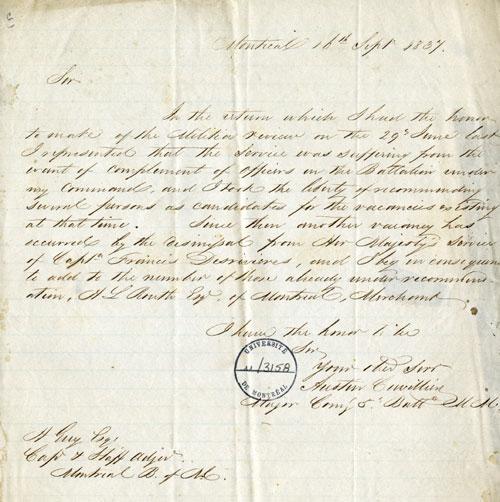 Montreal 16th Sept 1837.
Sir
In the return which I had the honor
to make of the Militia review on the 29th June last
I represented that the service was suffering from the
want of complement of Officers in the Battalion under
my Command, and I took the liberty of recommending
several persons as candidates for the vacancies existing
at that time. Since then another vacancy has
occurred by the dismissal from Her Majesty's Service
of Captn Francis Desrivieres and I beg in consequence
to add to the number of those already under recommend
ation, H L Routh Esq. of Montreal, Merchant
I have the honor to be
Sir
Your obed Servt
Austin Cuvillier
Major Comg 5 Battn M.M.
UNIVERSITÉ
/3158
DE MONTRÉAL
H Guy Esq
Capt & Staff Adjor
Montreal B. of M.